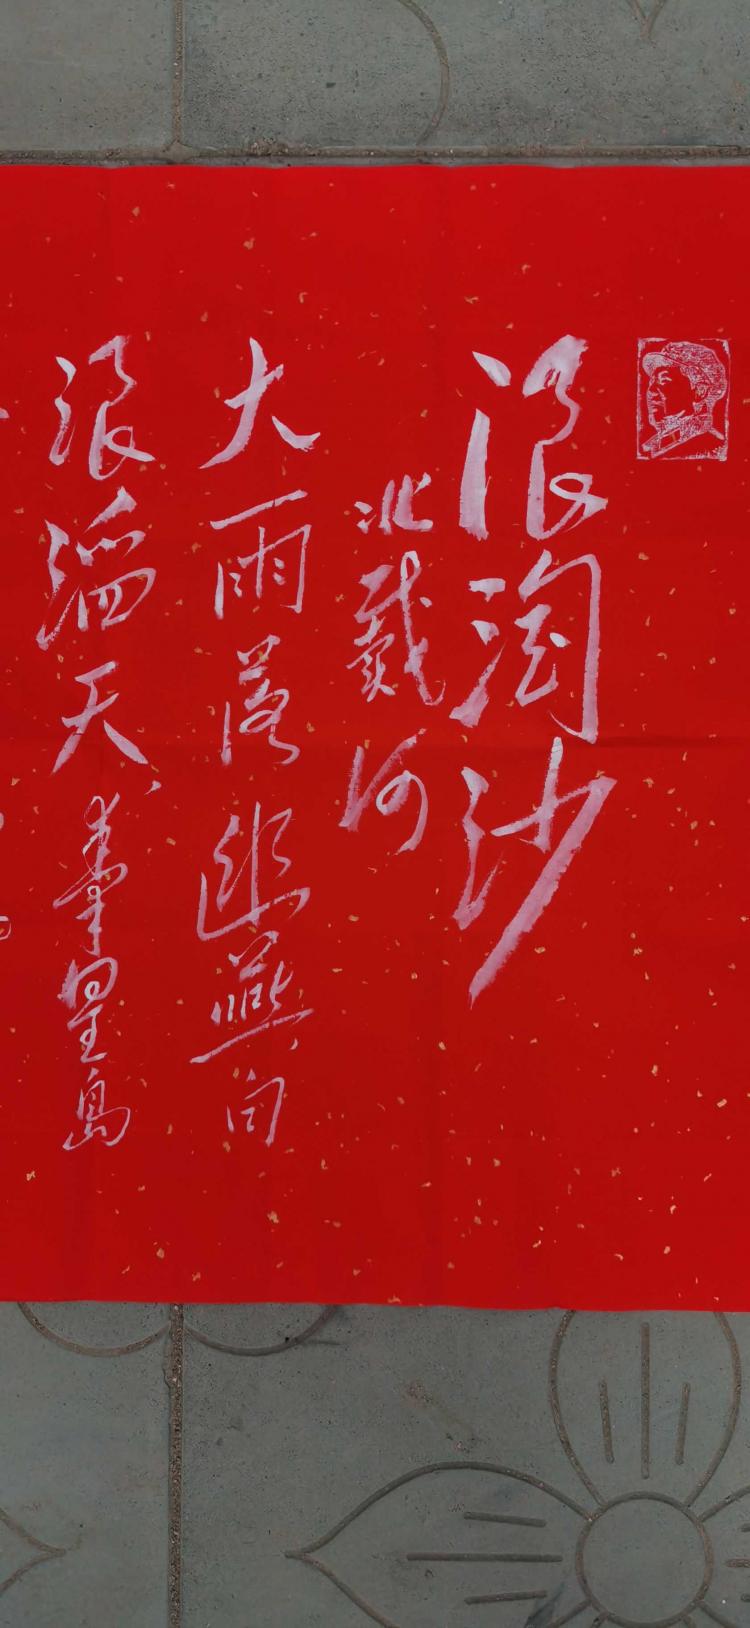 浪淘沙
北戴河
大雨落幽燕白
浪滔天秦皇島